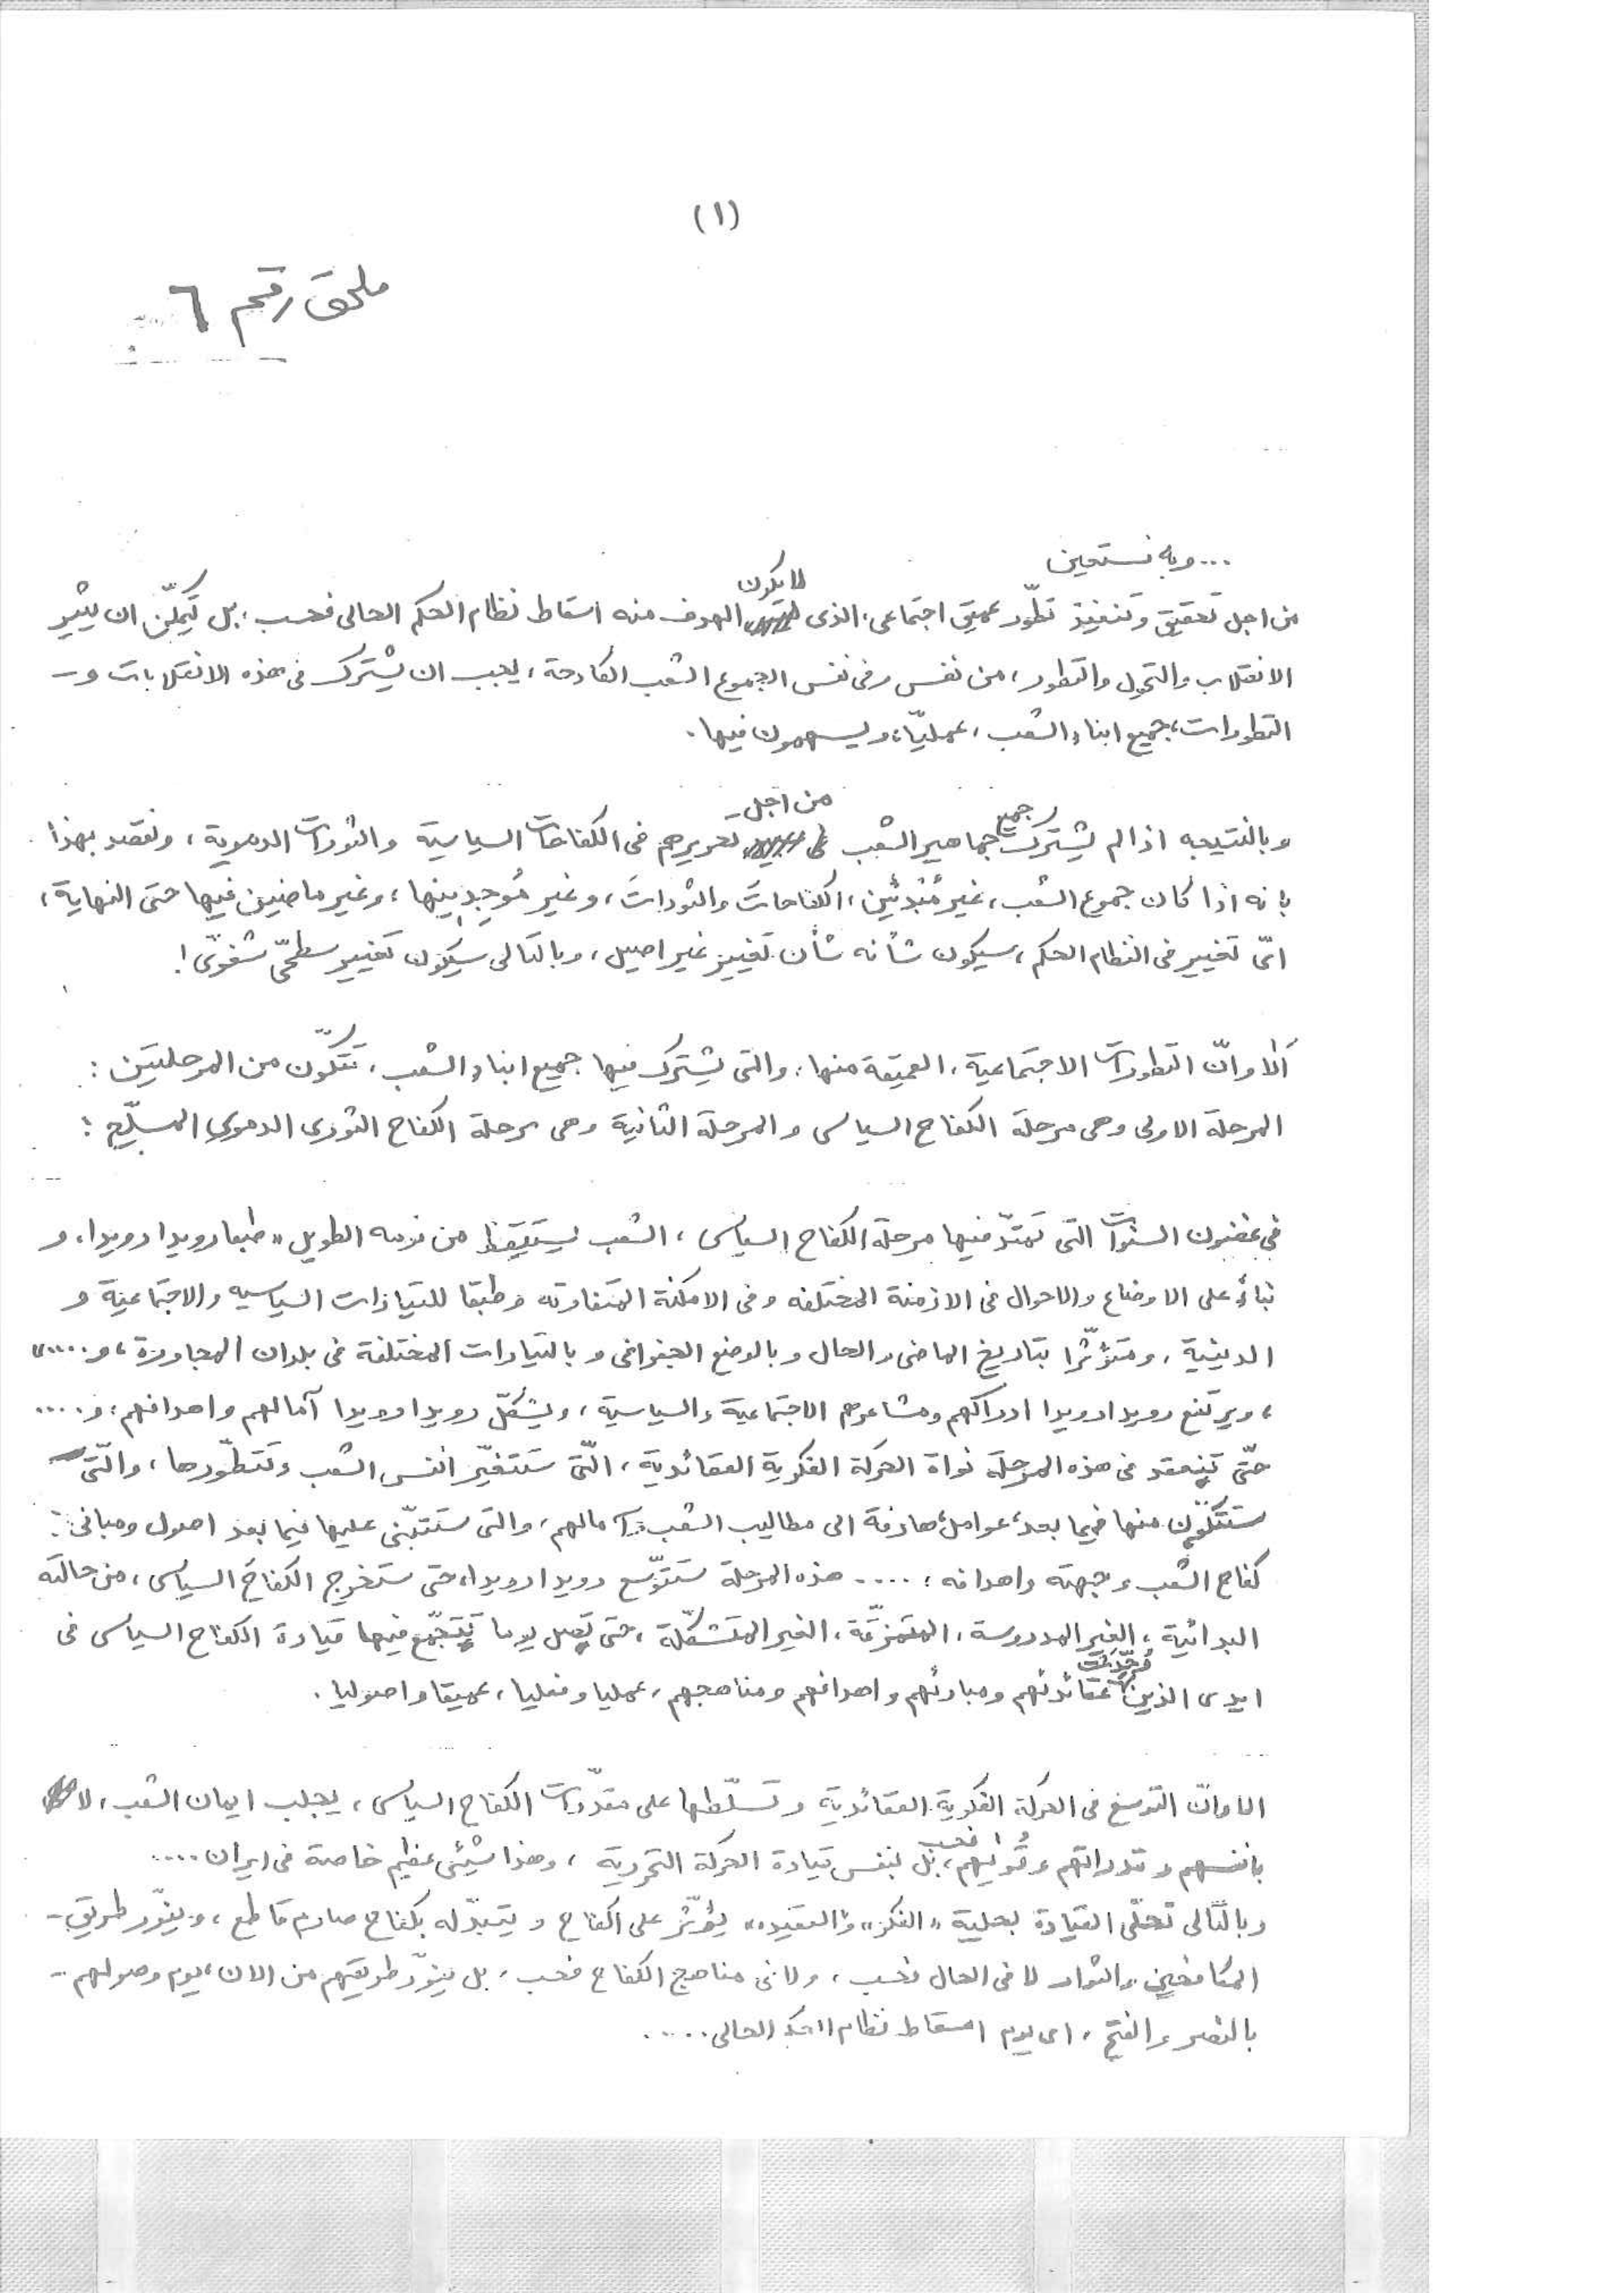 (١)
ملحق رقم ٦
... وبه نستعين
من اجل تحقيق وتنفيذ تطوّر عميق اجتماعى، الذى لا يكون الهدف منه اسقاط نظام الحكم الحالى فحسب، بل يَكمِّن ان يثير
الانقلاب والتحول والتطور، من نفس وفى نفس الجموع الشعب الكادحة، يجب ان يشترك فى هذه الانقلابات و-
التطورات، جميع ابناء الشعب، عمليّا، ويسهمون فيها.
وبالنتيجه اذا لم يشترك جميع جماهير الشعب من اجل تحريرهم فى الكفاحات السياسية والثورات الدموية، ونقصد بهذا
بانه اذا كان جموع الشعب، غير مُبْدئين، الكفاحات والثورات، وغير مُوجِدينها، وغير ماضيين فيها حتى النهاية،
اىّ تغيير فى النظام الحكم، سيكون شأنه شأن تغيير غير اصيل، وبالتالى سيكون تغيير سطحىّ شفوىّ!
اَلا وانّ التطورات الاجتماعية، العميقة منها، والتى يشترك فيها جميع ابناء الشعب، تتكوّن من المرحلتين:
المرحلة الاولى وهى مرحلة الكفاح السياسى والمرحلة الثانية وهى مرحلة الكفاح الثورى الدموى المسلّح:
فى غضون السنوات التى تمتدّ فيها مرحلة الكفاح السياسى، الشعب يستيقظ من نومه الطويل، طبعا رويدا رويدا، و
بناءً على الاوضاع والاحوال فى الازمنة المختلفه وفى الامكنة المتفاوته وطبقا للتيارات السياسيه والاجتماعية و
الدينية، ومتؤثّرا بتاريخ الماضى والحال وبالوضع الجغرافى وبالتيارات المختلفة فى بلدان المجاورة، و.....،
، ويرتفع رويدا رويدا ادراكهم ومشاعرهم الاجتماعية والسياسية، ويشكّل رويدا رويدا آمالهم واهدافهم، و....
حتّى تنعقد فى هذه المرحلة نواة الحركة الفكرية العقائدية، الّتى ستتغيّر انفس الشعب وتتطوّرها، والّتى
ستتكوّن منها فيما بعد، عوامل هادفة الى مطاليب الشعب وآمالهم، والتى ستتبنّى عليها فيما بعد اصول ومبانى:
كفاح الشعب وجبهته واهدافه؛ .... هذه المرحلة ستتوّسع رويدا رويدا، حتى ستخرج الكفاح السياسى، من حالته
البدائية، الغير المدروسة، المتمزّقة، الغير المتشكّلة، حتى تصل يوما تتجمّع فيها قيادة الكفاح السياسى فى
ايدى الذين وُحّدت عقائدهم ومبادئهم واهدافهم ومناهجهم، عمليا وفعليا، عميقا واصوليا.
الا وانّ التوسع فى الحركة الفكرية العقائدية وتسلّطها على مقدّرات الكفاح السياسى، يجلب ايمان الشعب، لا
بانفسهم وقدراتهم وقُوٰيهم فحسب، بل بنفس قيادة الحركة التحررية، وهذا شيئى عظيم خاصة فى ايران....
وبالتّالى تحلّى القيادة بحلية «الفكر» و«العقيده» يؤثّر على الكفاح ويتبدّله بكفاح صارم قاطع، وينوّر طريق-
المكافحين والثوار لا فى الحال فحسب، ولا فى مناهج الكفاح فحسب، بل ينوّر طريقهم من الان، يوم وصولهم-
بالنصر والفتح، اى يوم اسقاط نظام الحكم الحالى.....